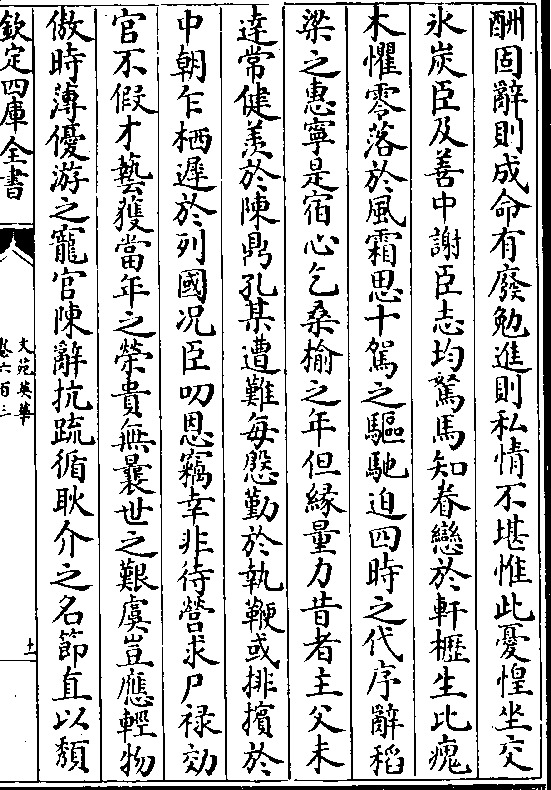 酬固辭則成命有廢勉進則私情不堪惟此憂惶坐交
氷炭臣及善中謝臣志均駑馬知眷戀於軒櫪生比瘣
木懼零落於風霜思十駕之驅馳迫四時之代序辭稻
梁之惠寧是宿心乞桑榆之年但緣量力昔者主父未
達常健羨於陳鼎孔某遭難每慇勤於執鞭或排擯於
中朝乍栖遲於列國况臣叨恩竊幸非待營求尸禄効
官不假才藝獲當年之榮貴無曩世之艱虞豈應輕物
傲時薄優游之寵官陳辭抗疏循耿介之名節直以頽
欽定四庫全書
文苑英華
卷六百三
十一